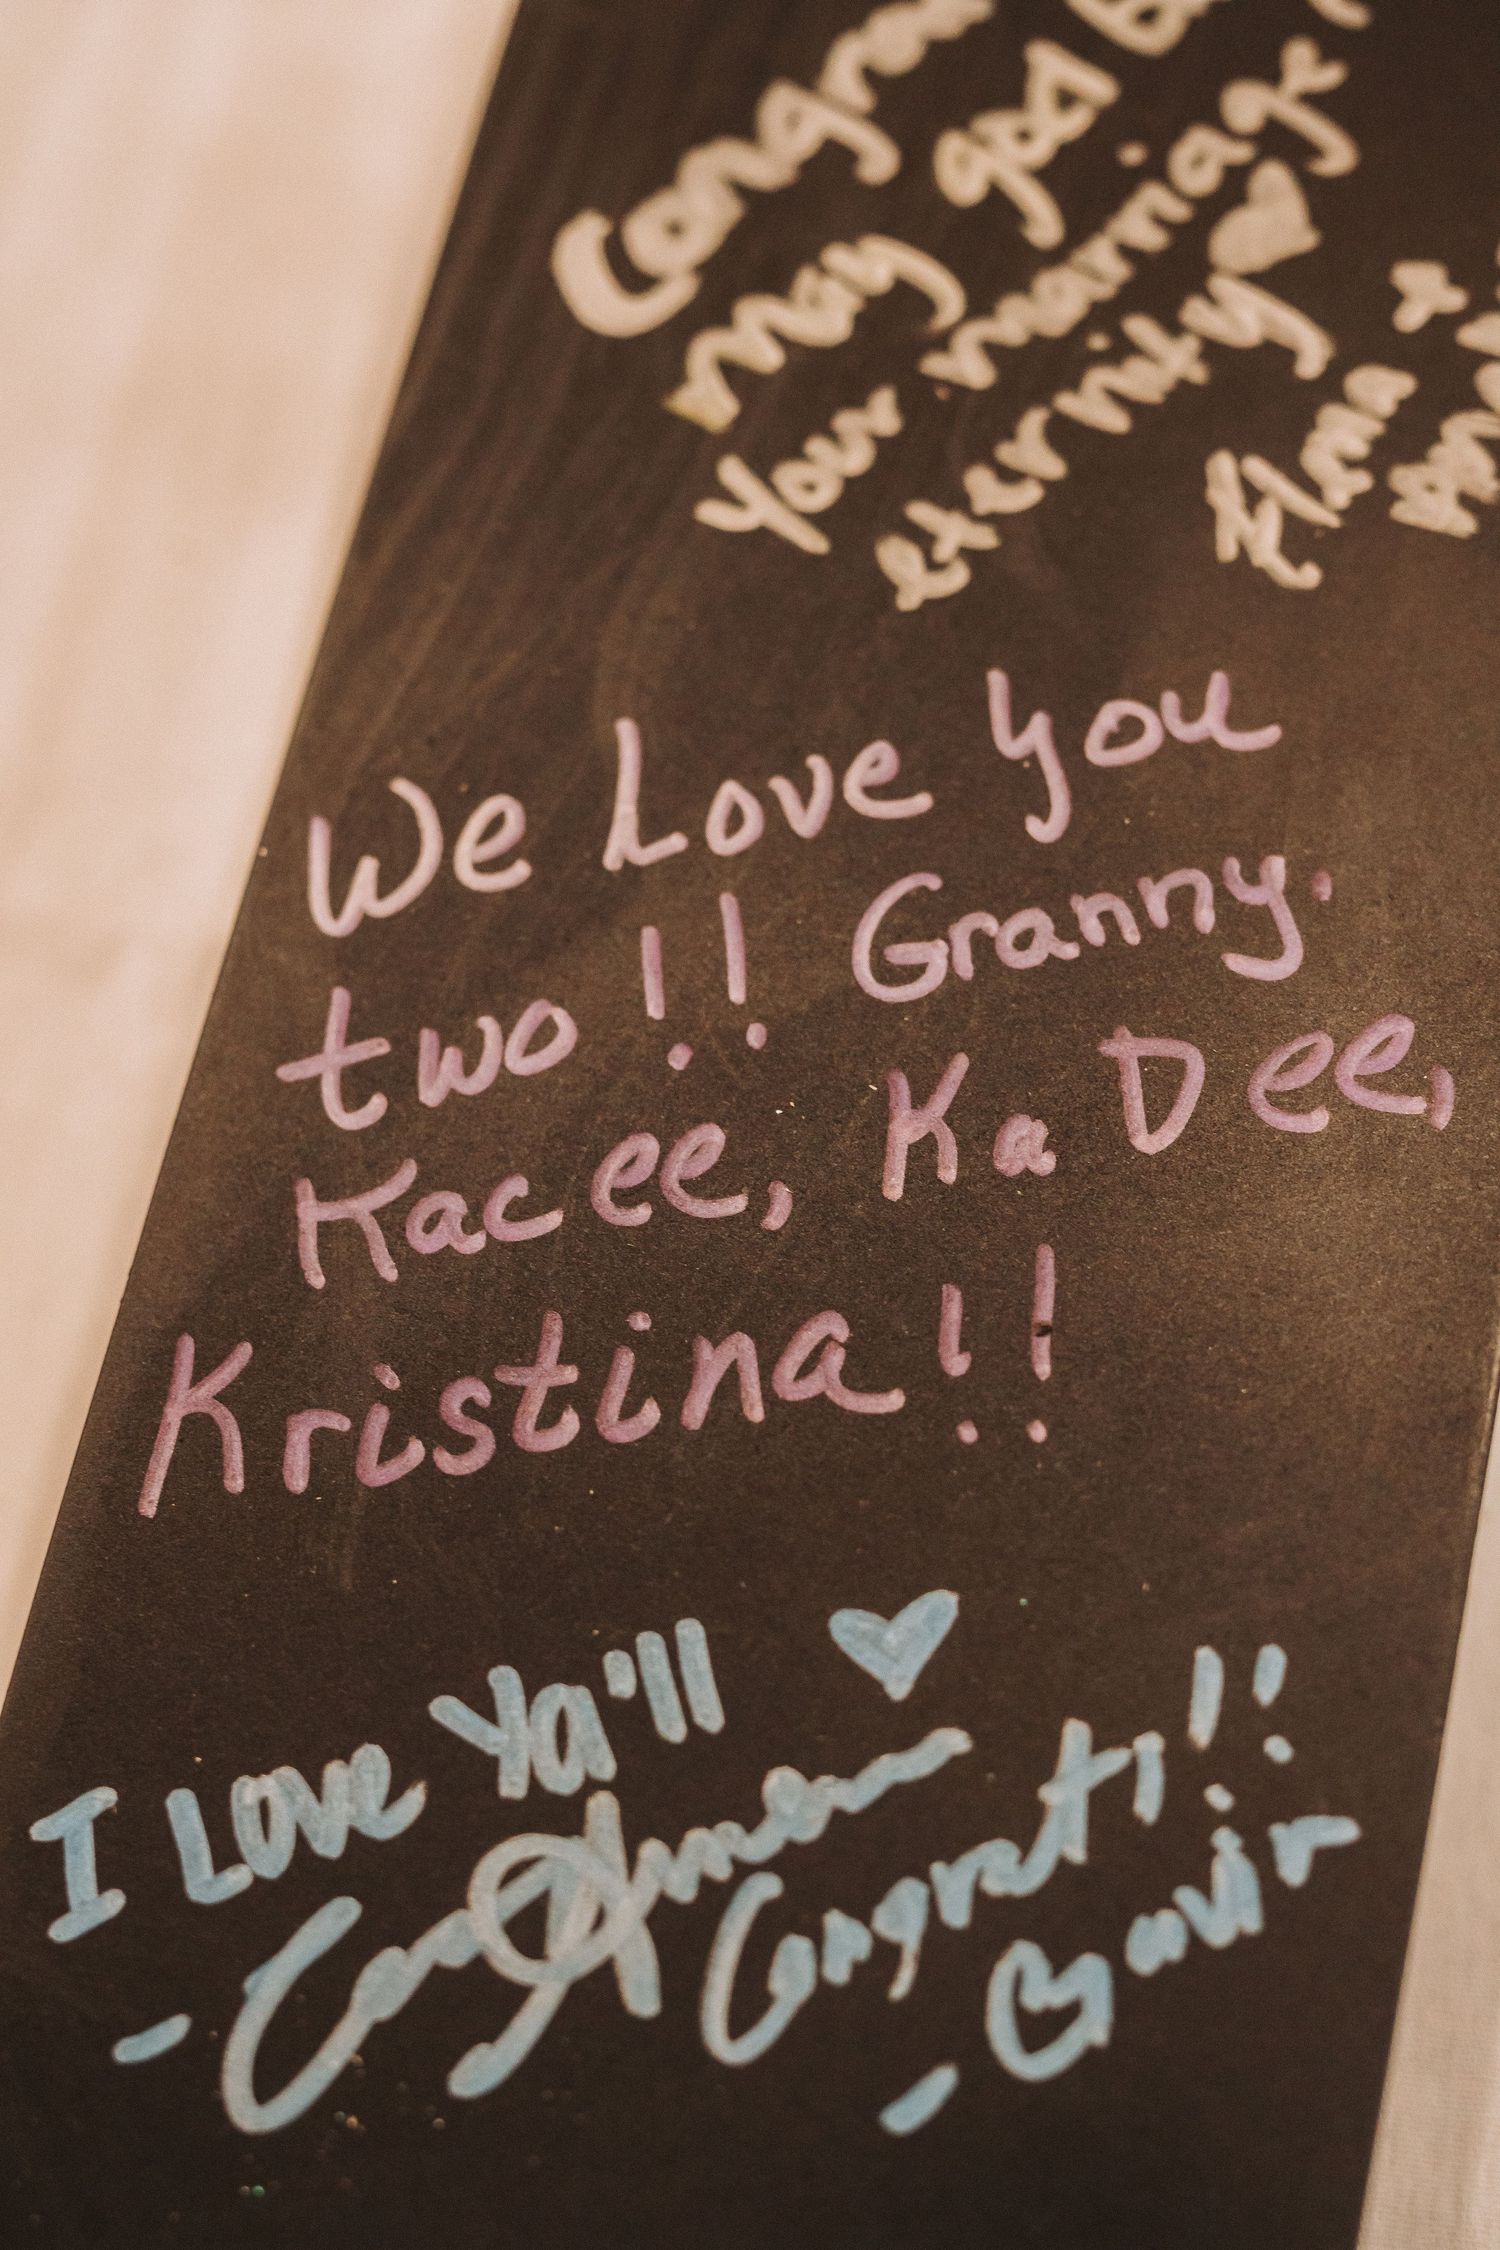 May god
your marriage
eternity
We Love you
two!! Granny.
Kacee, Ka Dee,
Kristina!!
I Love Ya'll
Congrats!!!
- Gavin